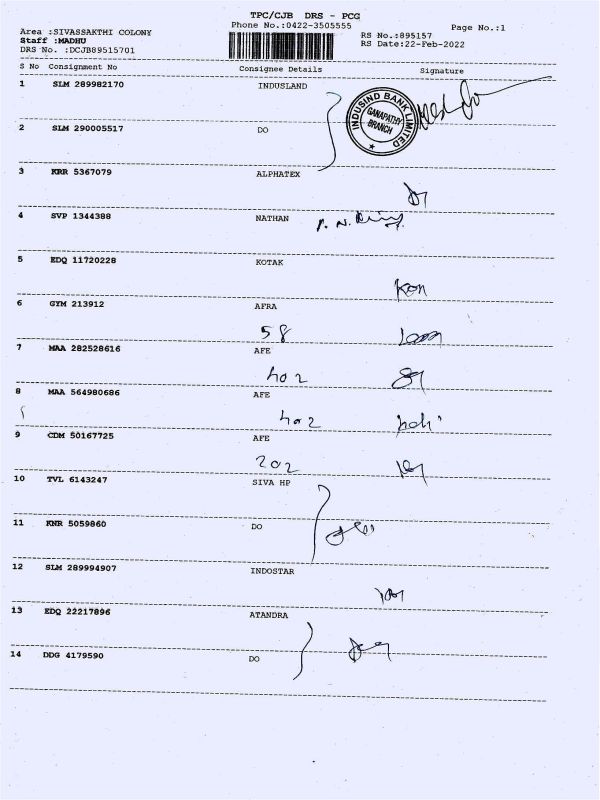 TPC/CJB DRS - PCG
Phone No.:0422-3505555
Page No.:1
Area :SIVASSAKTHI COLONY
Staff :MADHU
DRS No. :DCJB89515701
RS No.:895157
RS Date:22-Feb-2022
S No Consignment No Consignee Details Signature
1 SLM 289982170 INDUSLAND
INDUSIND BANK LIMITED
GANAPATHY
BRANCH
2 SLM 290005517 DO
3 KRR 5367079 ALPHATEX
4 SVP 1344388 NATHAN
5 EDQ 11720228 KOTAK
6 GYM 213912 AFRA
58
7 MAA 282528616 AFE
402
8 MAA 564980686 AFE
402
9 CDM 50167725 AFE
202
10 TVL 6143247 SIVA HP
11 KNR 5059860 DO
12 SLM 289994907 INDOSTAR
13 EDQ 22217896 ATANDRA
14 DDG 4179590 DO